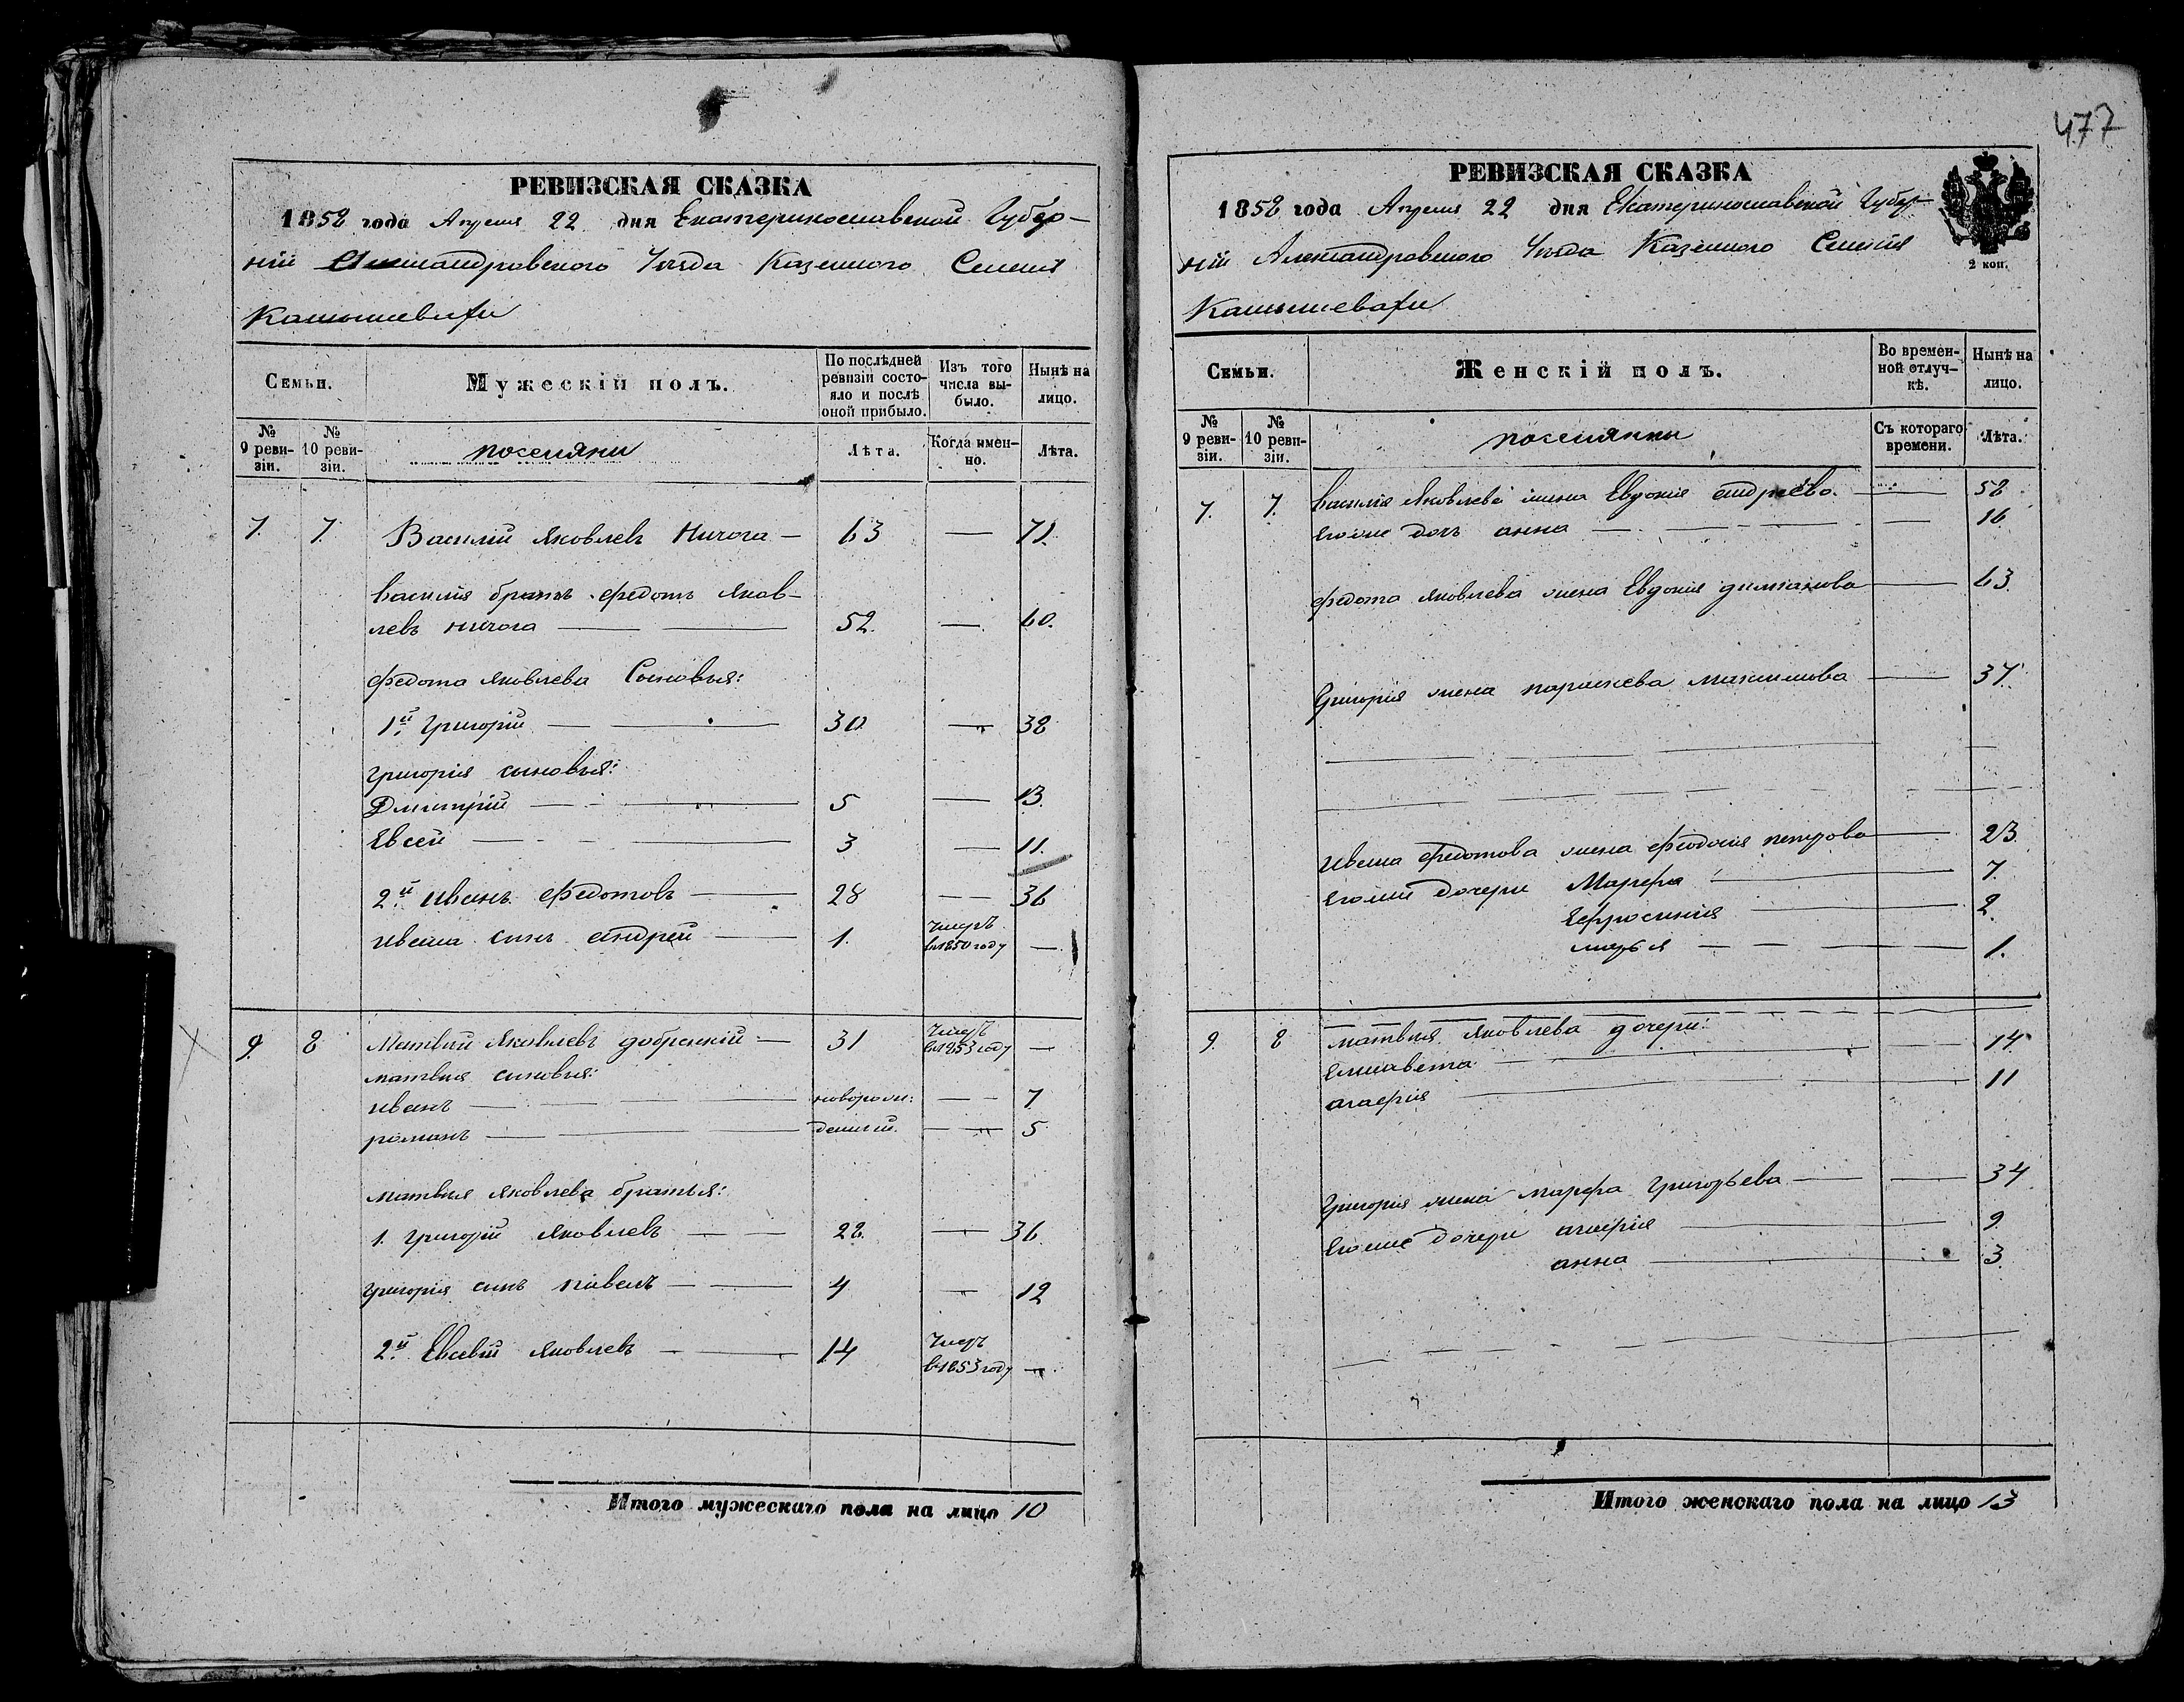 477
РЕВИЗСКАЯ СКАЗКА
1858 года Апреля 22 дня Екатеринославской Губер-
ніи Александровского Уезда Казенного Селенія
Камышевахи
Семьи.
Мужескій полъ.
По послѣдней ревизіи состояло и послѣ оной прибыло.
Изъ того числа выбыло.
Нынѣ на лицо.
№ 9 ревизіи.
№ 10 ревизіи.
поселяни
Лѣта.
Когда именно.
Лѣта.
7. 7. Василій Яковлевъ Ничога — 63 — 71.
Василія братъ Федотъ Яков-
левъ Ничога — 52. — 60.
Федота Яковлева Сыновья:
1й Григорій — 30 — 38
Григорія сыновья:
Дмитрій — 5 — 13.
Евсей — 3 — 11.
2й Иванъ Федотовъ — 28 — 36
Ивана сынъ Андрей — 1. умеръ в 1850 году —
9. 8 Матвѣй Яковлевъ добранскій — 31 умеръ в 1853 году —
Матвѣя сыновья:
Иванъ — новорож: — 7
романъ — денный. — 5
Матвѣя Яковлева братья:
1. Григорій Яковлевъ — 28. — 36.
Григорія сынъ павелъ — 4 — 12
2й Евсевій Яковлевъ — 14 умеръ в 1853 году —
Итого мужескаго пола на лицо 10
РЕВИЗСКАЯ СКАЗКА
1858 года Апреля 22 дня Екатеринославской Губер-
ніи Александровского Уезда Казенного Селенія
Камышевахи
2 коп.
Семьи.
Женскій полъ.
Во временной отлучкѣ.
Нынѣ на лицо.
№ 9 ревизіи.
№ 10 ревизіи.
поселянки
Съ котораго времени.
Лѣта.
7. 7. Василія Яковлева жена Евдокия андреева. — 58
Егоже дочь анна — 16
Федота Яковлева жена Евдокия — 63
Григорія жена параскева Максимова — 37.
Ивана Федотова жена Феодосия петрова — 23.
Егоже дочери Марфа — 7
Ефросиния — 2.
марья — 1.
9. 8 Матвѣя Яковлева дочери:
Елисавета — 14
агафия — 11
Григорія жена марфа Григорьева — 34
Егоже дочери агафия — 9
анна — 3
Итого женскаго пола на лицо 13